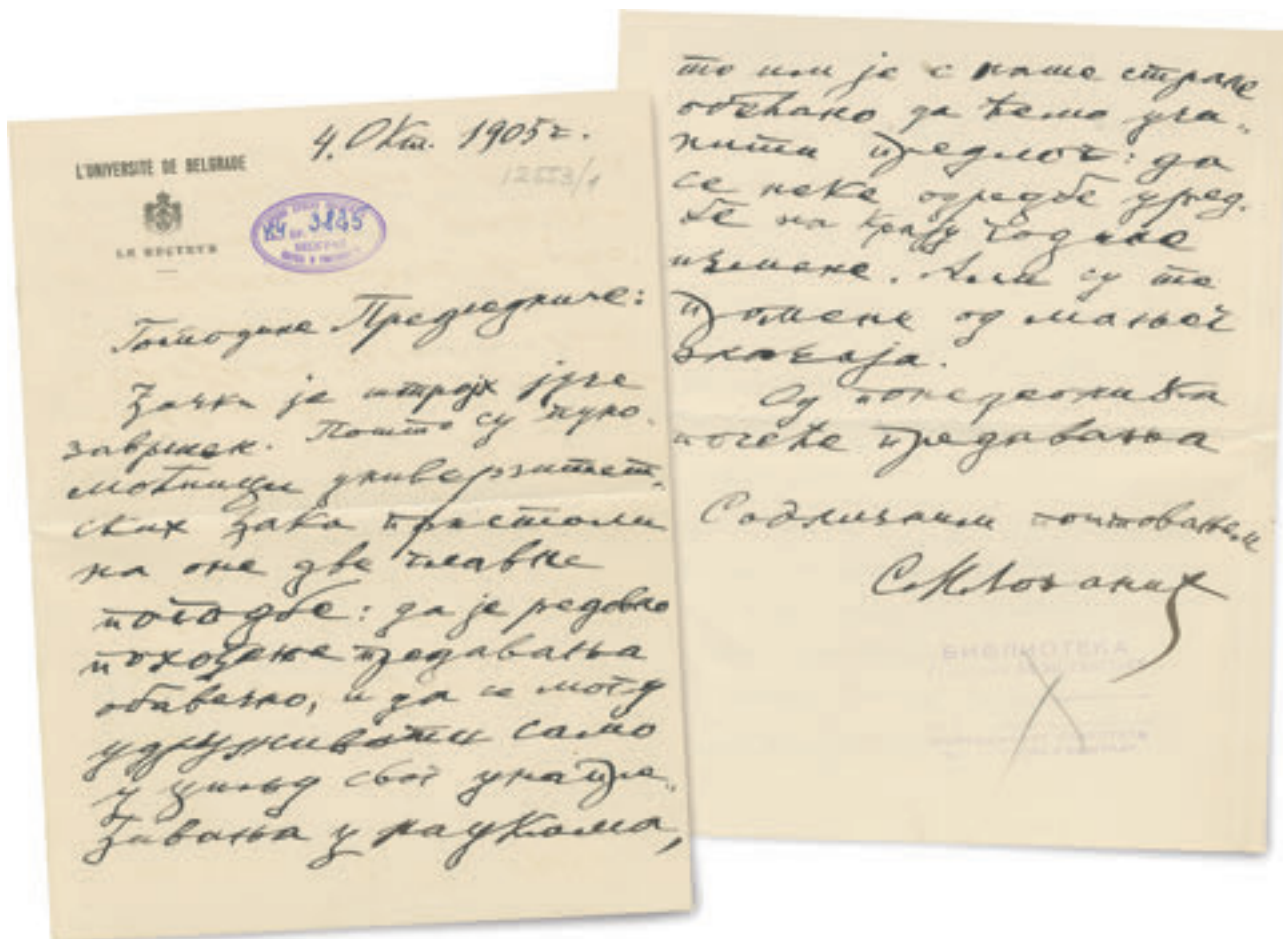 L'UNIVERSITÉ DE BELGRADE
LE RECTEUR
4. Окт. 1905 г.
12553/1
3845
Господине Председниче:
Ђачки је штрајк јуче
завршен. Пошто су пуно-
моћници универзитет-
ских ђака пристали
на оне две главне
погодбе: да је редовно
похођење предавања
обавезно, и да се могу
удруживати само
у циљу свог унапре-
ђивања у наукама,
то им је с наше стране
обећано да ћемо учи-
нити предлог: да
се неке одредбе уред-
бе на крају године
измене. Али су те
промене од мањег
значаја.
Од понедеоника
почеће предавања
С одличним поштовањем
С. М. Лозанић
БИБЛИОТЕКА